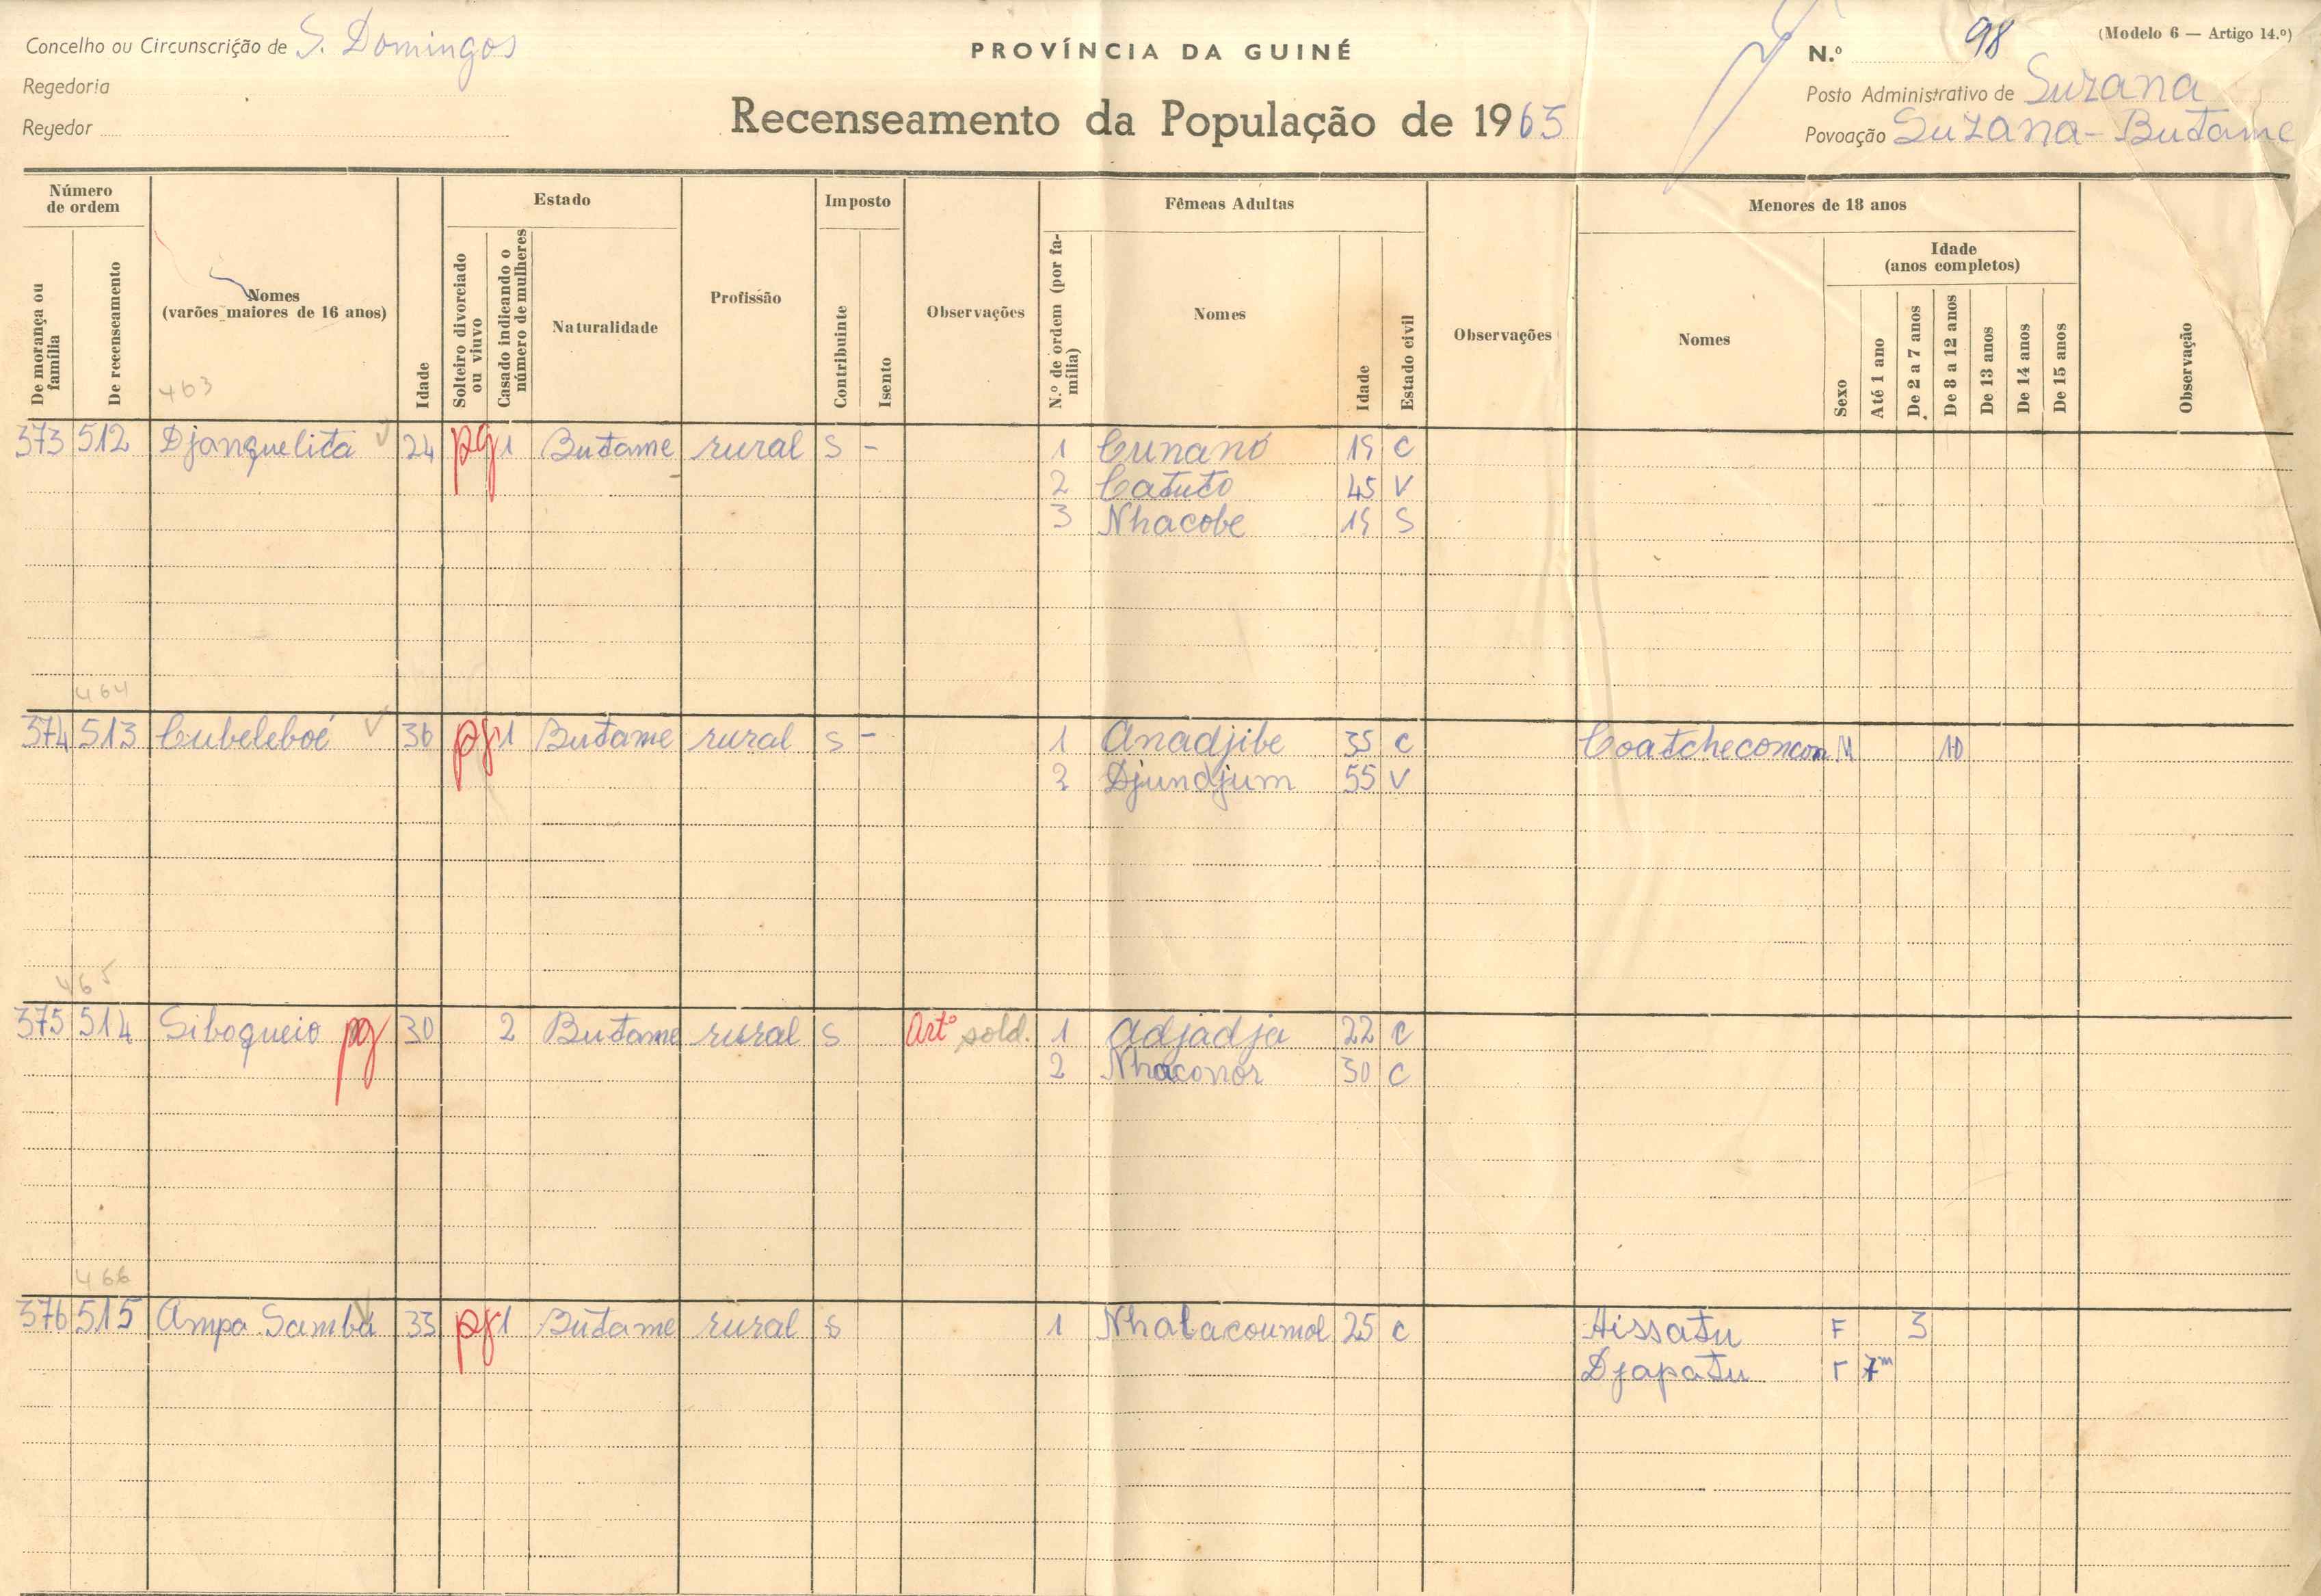 Concelho ou Circunscrição de S. Domingos
Regedoria
Regedor
PROVÍNCIA DA GUINÉ
Recenseamento da População de 1965
N.º 98
(Modelo 6 — Artigo 14.º)
Posto Administrativo de Suzana
Povoação Suzana - Butame
Número de ordem
De morança ou família
De recenseamento
Nomes
(varões maiores de 16 anos)
463
Idade
Estado
Solteiro divorciado ou viuvo
Casado indicando o número de mulheres
Naturalidade
Profissão
Imposto
Contribuinte
Isento
Observações
Fêmeas Adultas
N.º de ordem (por família)
Nomes
Idade
Estado civil
Observações
Menores de 18 anos
Nomes
Sexo
Idade
(anos completos)
Até 1 ano
De 2 a 7 anos
De 8 a 12 anos
De 13 anos
De 14 anos
De 15 anos
Observação
373 512 Djanquelita 24 pg 1 Butame rural S - 1 Cunanó 19 C
2 Catuto 45 V
3 Nhacobe 19 S
464
374 513 Cubeleboé 36 pg 1 Butame rural S - 1 Anadjibe 35 C Coatcheconcon M 10
2 Djundjum 55 V
465
375 514 Siboqueio pg 30 2 Butame rural S Artº sold. 1 Adjadja 22 C
2 Nhaconor 30 C
466
376 515 Ampa Samba 33 pg 1 Butame rural S 1 Nhalacoumol 25 C Aissatu F 3
Djapatu F 7m